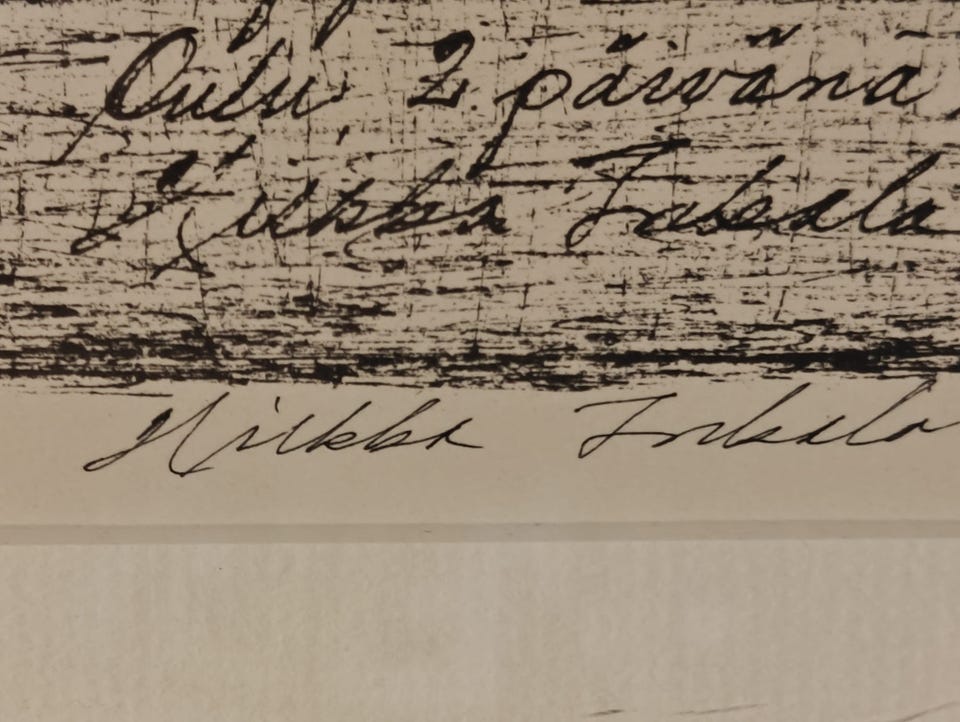 Oulu 2. päivänä
Hilkka Inkala
Hilkka Inkala